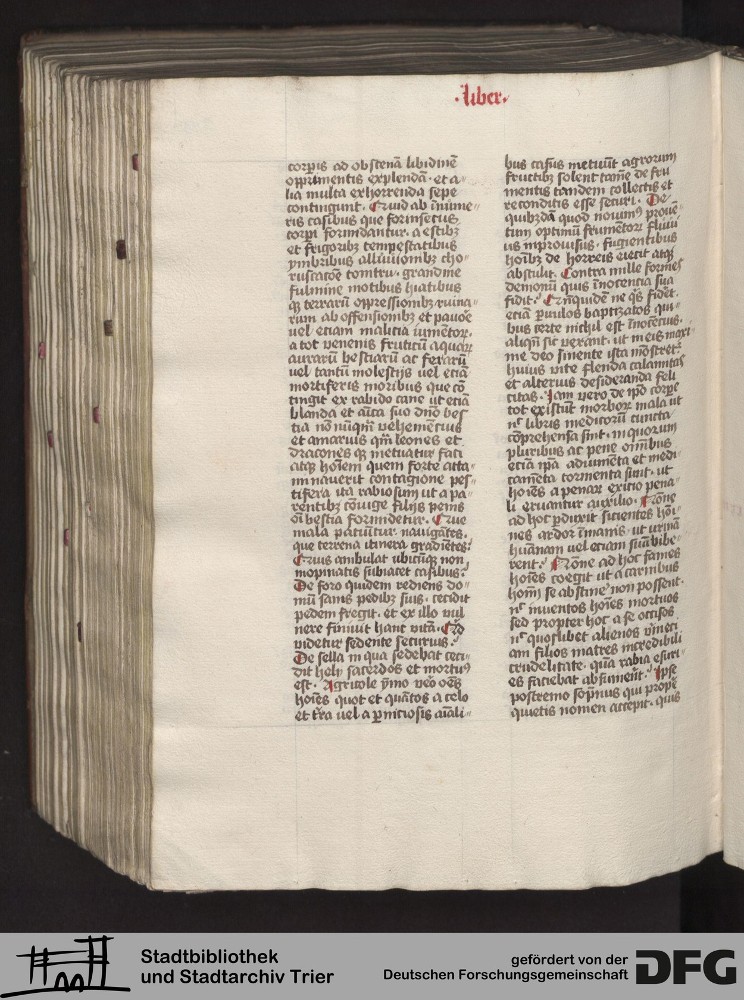 ·liber·
corp̄is ad obscenā libidinē
opprimentis explendā· et a-
lia multa exhorrenda sepe
contingunt· Quid ab īnume-
ris casibus que forinsecus
corpī formidantur· a estibꝫ
et frigoribꝫ tempestatibus
ymbribus alluuionibꝫ cho-
ruscacōe tonitru· grandine
fulmine motibus hiatibus
qꝫ terrarū oppressionibꝫ ruina-
rum ab offensionibꝫ et pauoē
vel etiam malicia iumētoꝝ·
a tot venenis fruticū aquaꝝ
aurarū bestiarū ac ferarū
vel tantū molestijs uel etiā
mortiferis moribus que cō
tingit ex rabido cane ut etiā
blanda et
suo dnō bes
tia nōnūqm̄ vehemētius
et amarius qm̄ leones et
dracones qꝫ metuatur faci
atqꝫ hoīem quem forte atta-
minauerit contagione pes-
tifera ita rabiosum ut a pa-
rentibꝫ cōiuge filijs peius
oī bestia formidetur· Que
mala patiūtur nauigātes·
que terrena itinera gradiētes?
Quis ambulat ubicūqꝫ non
inopinatis subiacet casibus?
De foro quidem rediens do-
mū sanis pedibꝫ suis· cecidit
pedem fregit· et ex illo vul
nere finiuit hanc vitā· Qīd
videtur sedente securius?
De sella in qua sedebat ceci-
dit hely sacerdos et mortuꝰ
est· Agricole ymo vēo oēs
hoīes quot et quātos a celo
et t̄ra uel a ꝑniciosis aīali-
bus casus metuūt agrorum
fructibꝫ solent tam̄e de fru
mentis tandem collectis et
reconditis esse securi· De
quibꝫdā quod nouimꝰ prouē-
tum optimū frumentoꝝ fluui
us improuisus· fugientibus
hoībꝫ de horreis eiecit atqꝫ
abstulit· Contra mille formes
demonū quis īnocentia sua
fidit? Qn̄quidē ne q̄s fidet·
eciā ꝑuulos baptizatos qui-
bus certe nichil est īnocētius·
aliqn̄ sic vexant· ut in eis maxi-
me deo sinente ista mōstret̄
huius vite flenda calamitas
et alterius desideranda feli
citas· Iam vero de ip̄o corpē
tot existūt morboꝝ mala ut
nͨ libris medicorū cuncta
cōprehensa sint· in quorum
pluribus ac pene omībus
eciā ip̄a adiumēta et medi
camēta tormenta sunt· ut
hoīes a penaꝝ exitio pena-
li eruantur auxilio·
ad hoc ꝑduxit sicientes hōi-
nes ardor īmanis· ut urinā
hūanam uel etiam suā bibe-
rent?
ad hoc fames
hoīes coegit ut a carnibus
hoīm se abstinē non possent·
nͨ inuentos hoīes mortuos
sed propter hoc a se occisos
nͨ quoslibet alienos
am filios matres incredibili
crudelitate· quā rabia esuri-
es faciebat absumerīt· Ipse
postremo sopnus qui propē
quietis nomen accepit· quis
Stadtbibliothek
und Stadtarchiv Trier
gefördert von der
Deutschen Forschungsgemeinschaft
DFG